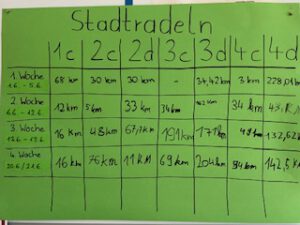 Stadtradeln
1c 2c 2d 3c 3d 4c 4d
1. Woche 68 km 30 km 30 km - 34,42 km 3 km 228,01 km
1.6. - 5.6.
2. Woche 12 km 5 km 33 km 34 km km 34 km 43, km
6.6. - 12.6.
3. Woche 16 km 48 km 67,7 km 191 km 171 km km 132,62 k
13.6 - 19.6.
4. Woche 16 km 76 km 11 KM 69 km 204 km 94 km 142,5 k
20.6 / 21.6